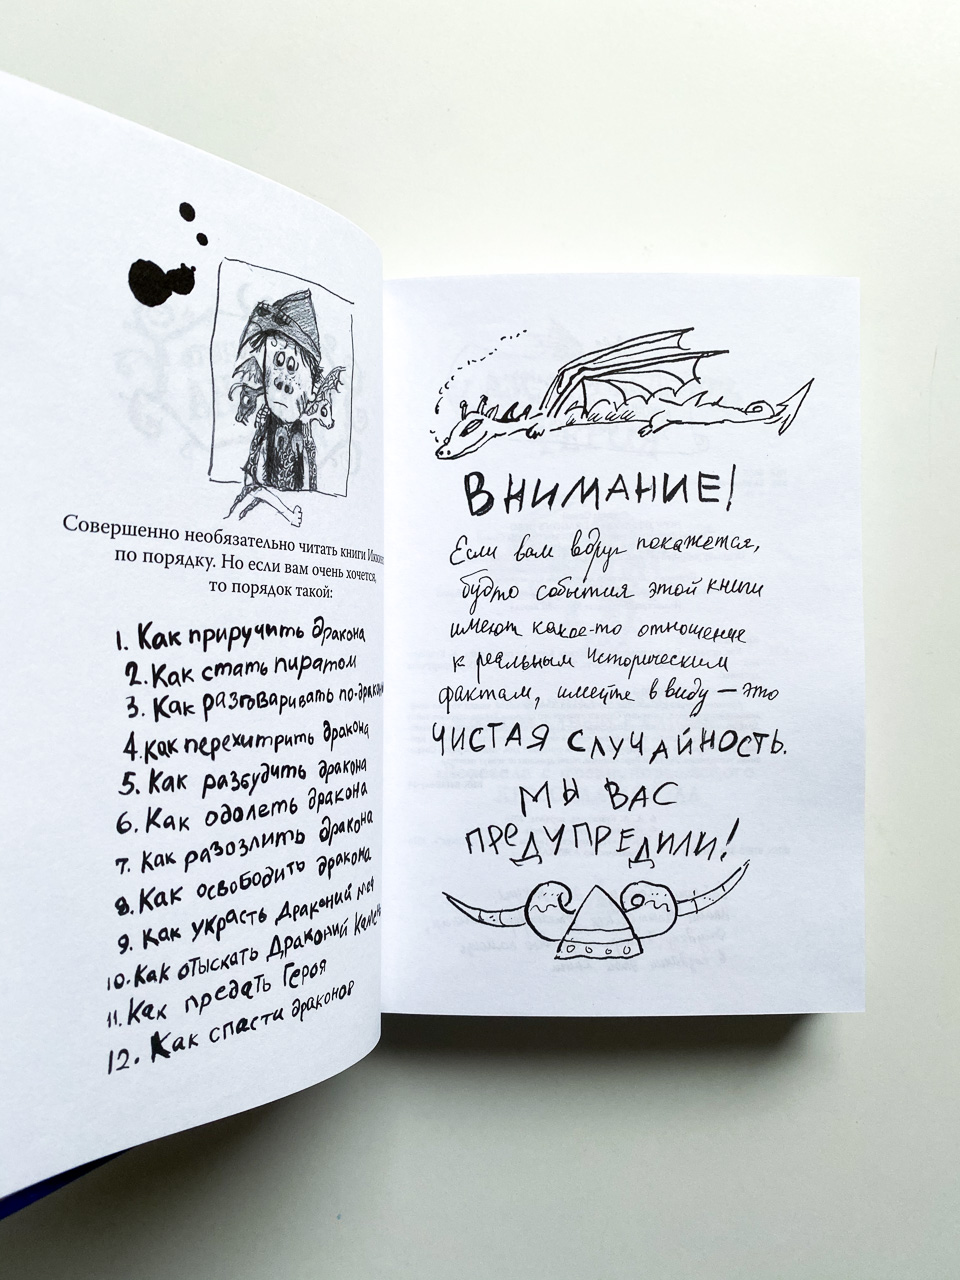 Совершенно необязательно читать книги
по порядку. Но если вам очень хочется,
то порядок такой:
1. Как приручить дракона
2. Как стать пиратом
3. Как разговаривать по-драконьи
4. Как перехитрить дракона
5. Как разбудить дракона
6. Как одолеть дракона
7. Как разозлить дракона
8. Как освободить дракона
9. Как украсть Драконий меч
10. Как отыскать Драконий Камень
11. Как предать Героя
12. Как спасти драконов
ВНИМАНИЕ!
Если вам вдруг покажется,
будто события этой книги
имеют какое-то отношение
к реальным историческим
фактам, имейте в виду — это
ЧИСТАЯ СЛУЧАЙНОСТЬ.
МЫ ВАС
ПРЕДУПРЕДИЛИ!